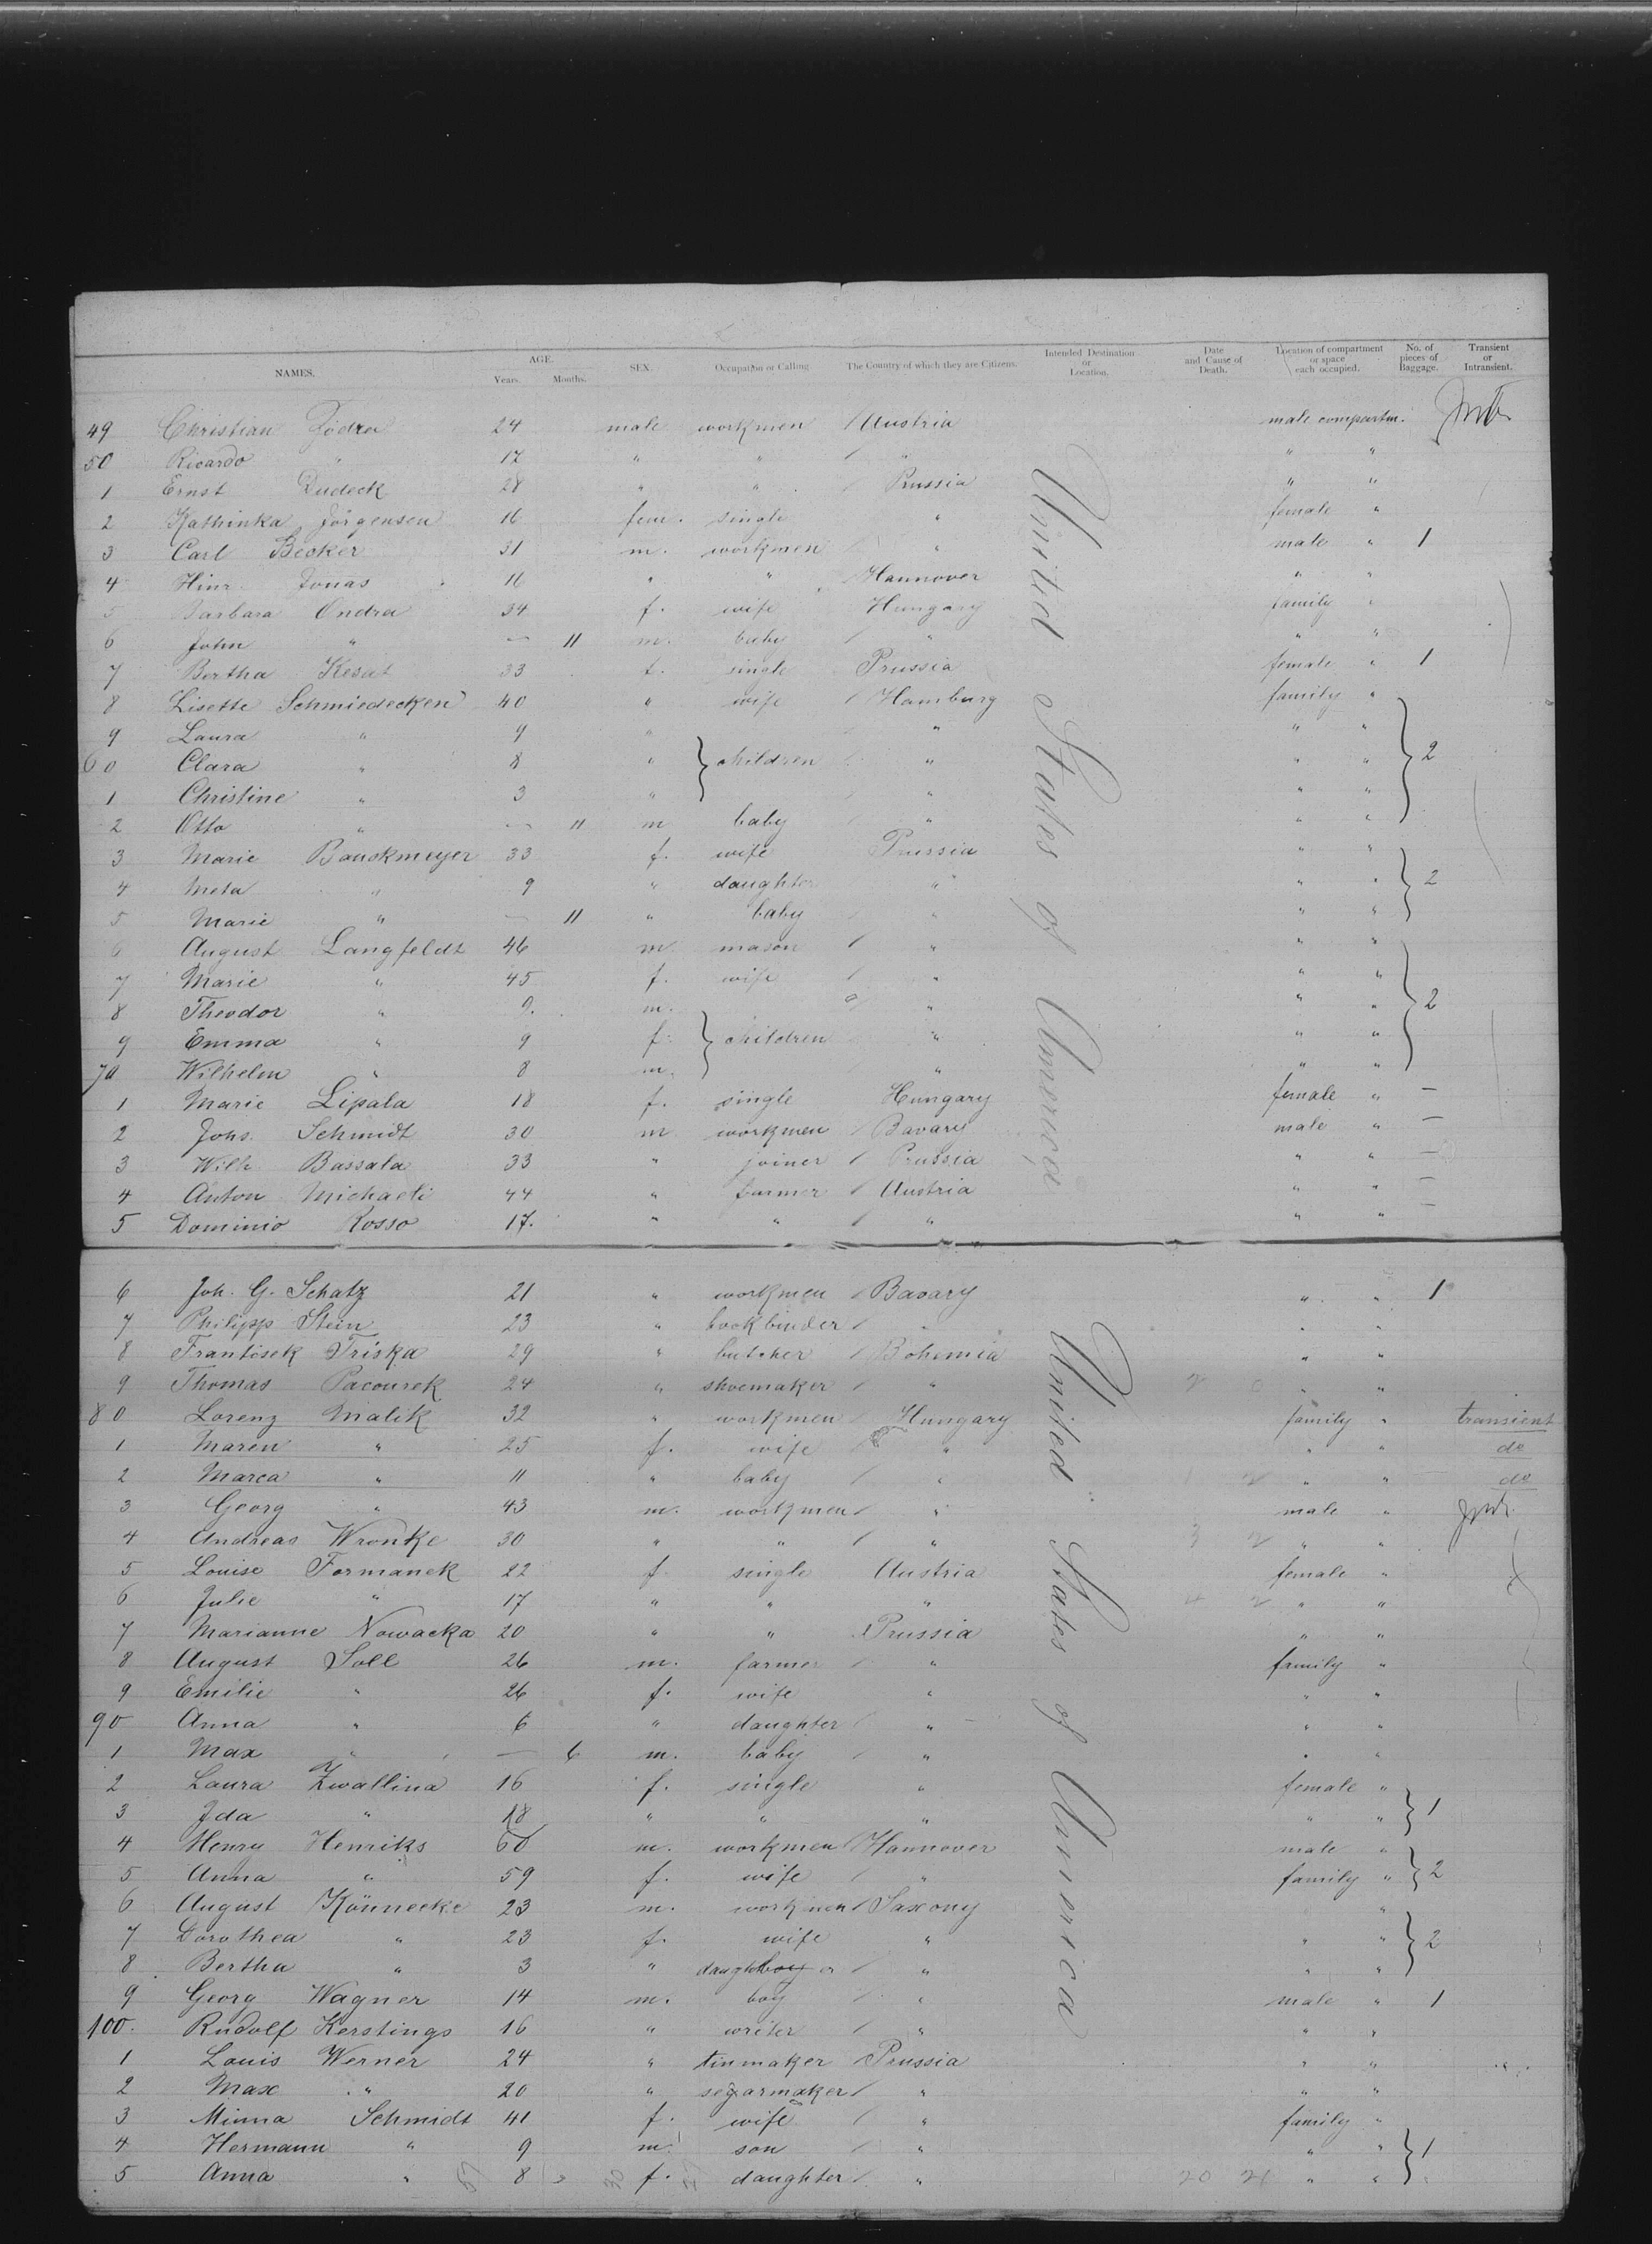 NAMES. AGE. Years. Months. SEX. Occupation or Calling. The Country of which they are Citizens. Intended Destination or Location. Date and Cause of Death. Location of compartment or space each occupied. No. of pieces of Baggage. Transient or Intransient.
49 Christian Födra 24 male workmen Austria male compartm.
50 Ricardo " 17 " " " " "
1 Ernst Dudeck 28 " " Prussia " "
2 Kathinka Jörgensen 16 fem. single " female "
3 Carl Becker 31 m. workmen " male " 1
4 Hinr. Jonas 16 " " Hannover " "
5 Barbara Ondra 34 f. wife Hungary family "
6 John " — 11 m. baby " " "
7 Bertha Kesat 33 f. single Prussia female " 1
8 Lisette Schmiedecken 40 " wife Hamburg family "
9 Laura " 9 " " " "
60 Clara " 8 " children " " " 2
1 Christine " 3 " " " "
2 Otto " — 11 m baby " " "
3 Marie Banckmeyer 33 f. wife Prussia " "
4 Meta " 9 " daughter " " " 2
5 Marie " — 11 " baby " " "
6 August Langfeldt 46 m. mason " " "
7 Marie " 45 f. wife " " "
8 Theodor " 9. m. " " " 2
9 Emma " 9 f. children " " "
70 Wilhelm " 8 m. " " "
1 Marie Lipala 18 f. single Hungary female " —
2 Johs. Schmidt 30 m workmen Bavary male " —
3 Wilh Bassala 33 " joiner Prussia " " —
4 Anton Michaeli 44 " farmer Austria " " —
5 Dominio Rosso 17. " " " " " —
United States of America
6 Joh. G. Schatz 21 " workmen Bavary " " 1
7 Philipp Stein 23 " bookbinder " " "
8 Frantisek Triska 29 " butcher Bohemia " "
9 Thomas Pacourek 24 " shoemaker " " "
80 Lorenz Malik 32 " workmen Hungary family " transient
1 Maren " 25 f. wife " " " do
2 Marca " 11 " baby " " " do
3 Georg " 43 m. workmen " male "
4 Andreas Wronke 30 " " " " "
5 Louise Formanek 22 f. single Austria female "
6 Julie " 17 " " " " "
7 Marianne Nowacka 20 " " Prussia " "
8 August Soll 26 m. farmer " family "
9 Emilie " 26 f. wife " " "
90 Anna " 6 " daughter " " "
1 Max " — 6 m. baby " " "
2 Laura Zwallina 16 f. single " female "
3 Ida " 18 " " " " " 1
4 Henry Henriks 60 m. workmen Hannover male "
5 Anna " 59 f. wife " family " 2
6 August Könnecke 23 m. workmen Saxony "
7 Dorothea " 23 f. wife " " " 2
8 Bertha " 3 " daughter " " "
9 Georg Wagner 14 m. boy " male " 1
100. Rudolf Kerstings 16 " writer " " "
1 Louis Werner 24 " tinmaker Prussia " "
2 Max " 20 " segarmaker " " "
3 Minna Schmidt 41 f. wife " family "
4 Hermann " 9 m. son " " " 1
5 Anna " 8 f. daughter " " "
United States of America